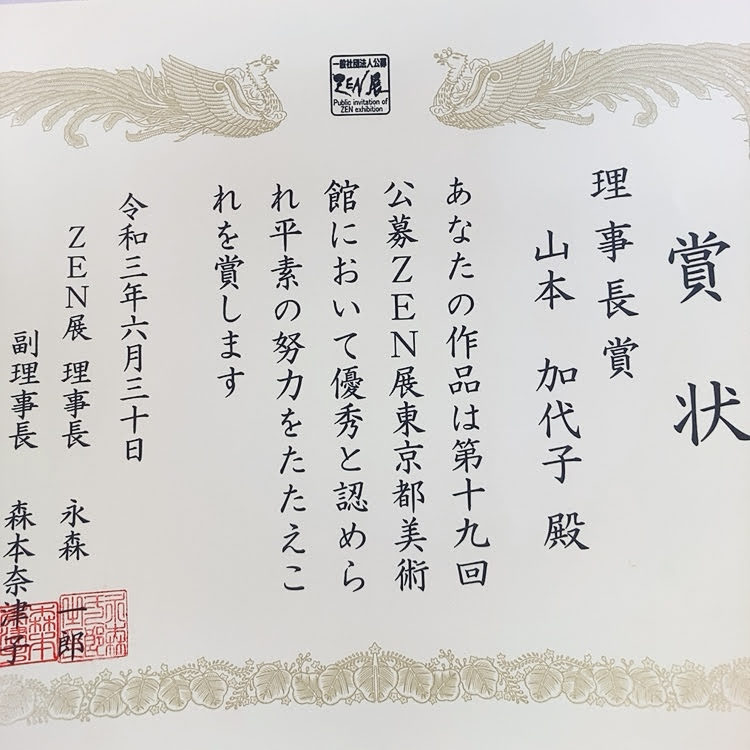 一般社団法人公募
ZEN展
Public invitation of
ZEN exhibition
賞状
理事長賞
山本 加代子 殿
あなたの作品は第十九回
公募ZEN展東京都美術
館において優秀と認めら
れ平素の努力をたたえこ
れを賞します
令和三年六月三十日
ZEN展 理事長 永森 一郎
副理事長 森本奈津子